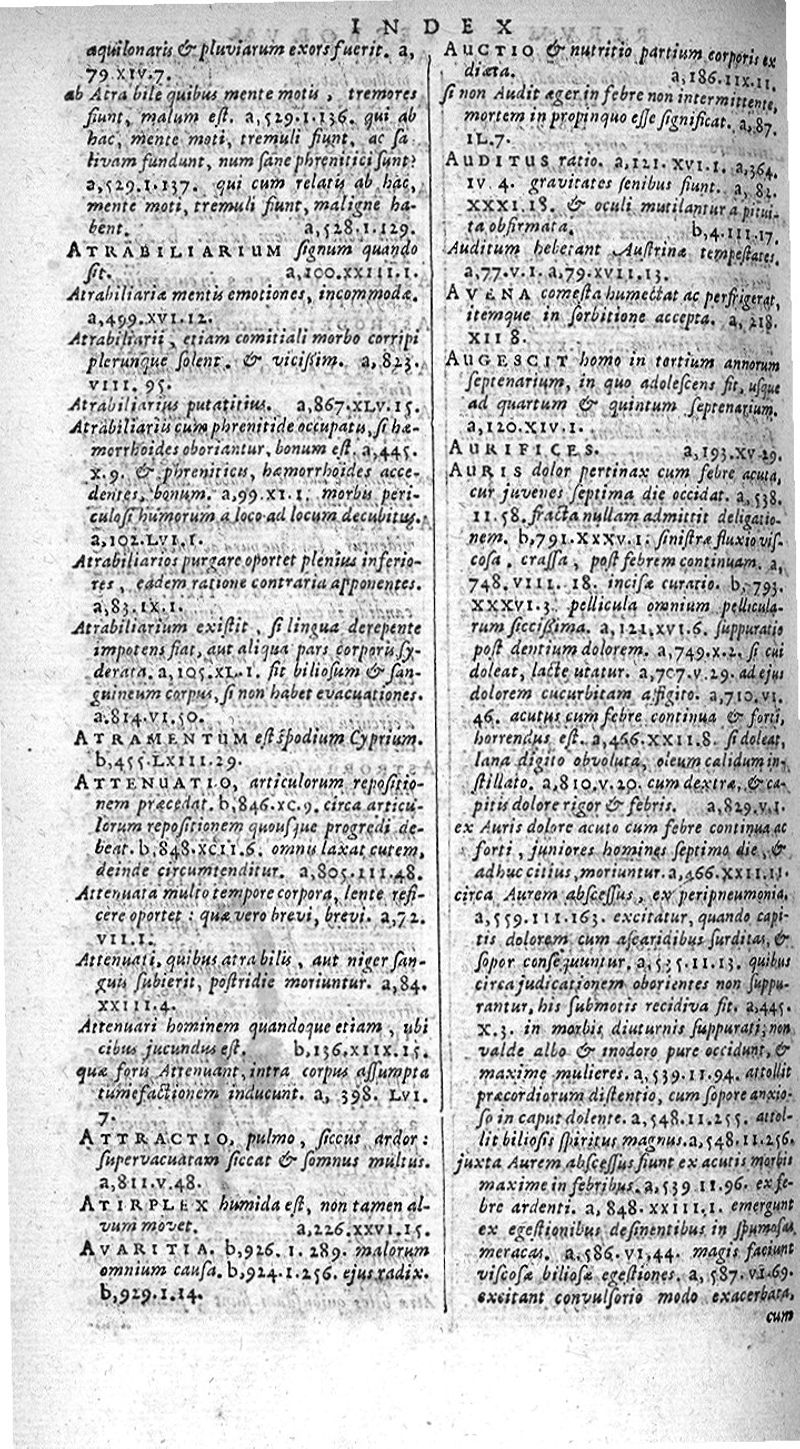 INDEX
aquilonaris & pluviarum exors fuerit. a,
79.XIV.7.
ab Atra bile quibus mente motis, tremores
fiunt, malum est. a,529.1.136. qui ab
hac, mente moti, tremuli fiunt, ac sa
livam fundunt, num sane phrenitici sunt?
a,529.1.137. qui cum relatis ab hac,
mente moti, tremuli fiunt, maligne ha-
bent. a,528.1.129.
ATRABILIARIUM signum quando
sit. a,100.XXIII.1.
Atrabiliariæ mentis emotiones, incommodæ.
a,499.XVI.12.
Atrabiliarii, etiam comitiali morbo corripi
plerunque solent. & vicissim. a,823.
VIII.95.
Atrabiliarius putatitius. a,867.XLV.15.
Atrabiliariis cum phrenitide occupatis, si hæ-
morrhoides oboriantur, bonum est. a,445.
X.9. & phreniticis, hæmorrhoides acce-
dentes, bonum. a,99.XI.1. morbis peri-
culosi humorum a loco ad locum decubitus.
a,102.LVI.1.
Atrabiliarios purgare oportet plenius inferio-
res, eadem ratione contraria apponentes.
a,83.IX.1.
Atrabiliarium existit, si lingua derepente
impotens fiat, aut aliqua pars corporis sy-
derata. a,105.XL.1. fit biliosum & san-
guineum corpus, si non habet evacuationes.
a.814.VI.50.
ATRAMENTUM est spodium Cyprium.
b,455.LXIII.29.
ATTENUATIO, articulorum repositio-
nem præcedat. b,846.XC.9. circa articu-
lorum repositionem quousque progredi de-
beat. b,848.XCII.6. omnis laxat cutem,
deinde circumtenditur. a,805.III.48.
Attenuata multo tempore corpora, lente refi-
cere oportet: quæ vero brevi, brevi. a,72.
VII.1.
Attenuati, quibus atra bilis, aut niger san-
guis subierit, postridie moriuntur. a,84.
XXIII.4.
Attenuari hominem quandoque etiam, ubi
cibus jucundus est. b,136.XIIX.15.
quæ foris Attenuant, intra corpus assumpta
tumefactionem inducunt. a, 398. LVI.
7.
ATTRACTIO, pulmo, siccus ardor:
supervacuatam siccat & somnus multus.
a,811.V.48.
ATIRPLEX humida est, non tamen al-
vum movet. a,226.XXVI.15.
AVARITIA. b,926.1.289. malorum
omnium causa. b,924.1.256. ejus radix.
b,929.1.14.
AUCTIO & nutritio partium corporis ex
diæta. a,186.IIX.11.
si non Audit æger in febre non intermittente,
mortem in propinquo esse significat. a,87.
IL.7.
AUDITUS ratio. a,121.XVI.1. a,364.
IV 4. gravitates senibus fiunt. a, 82.
XXXI.18. & oculi mutilantur a pitui-
ta obfirmata. b,4.III.17.
Auditum hebetant Austrinæ tempestates.
a,77.V.1. a,79.XVII.13.
AVENA comesta humectat ac perfrigerat,
itemque in sorbitione accepta. a, 218.
XII 8.
AUGESCIT homo in tertium annorum
septenarium, in quo adolescens fit, usque
ad quartum & quintum septenarium.
a,120.XIV.1.
AURIFICES. a,193.XV.29.
AURIS dolor pertinax cum febre acuta,
cur juvenes septima die occidat. a,538.
II.58. fracta nullam admittit deligatio-
nem. b,791.XXXV.1. sinistræ fluxio vis-
cosa, crassa, post febrem continuam. a,
748.VIII. 18. incisæ curatio. b, 793.
XXXVI.3. pellicula omnium pellicula-
rum siccissima. a,121.XVI.6. suppuratio
post dentium dolorem. a,749.X.2. si cui
doleat, lacte utatur. a,707.V.29. ad ejus
dolorem cucurbitam affigito. a,710.VI.
46. acutus cum febre continua & forti,
horrendus est. a,466.XXII.8. si doleat,
lana digito obvoluta, oleum calidum in-
stillato. a,810.V.20. cum dextræ, & ca-
pitis dolore rigor & febris. a,829.V.1.
ex Auris dolore acuto cum febre continua ac
forti, juniores homines septimo die, &
adhuc citius, moriuntur. a,466.XXII.11.
circa Aurem abscessus, ex peripneumonia.
a,559.III.163. excitatur, quando capi-
tis dolorem cum ascaridibus surditas, &
sopor consequuntur. a,535.II.13. quibus
circa judicationem oborientes non suppu-
rantur, his submotis recidiva fit. a,445.
X.3. in morbis diuturnis suppurati, non
valde albo & inodoro pure occidunt, &
maxime mulieres. a,539.II.94. attollit
præcordiorum distentio, cum sopore anxio-
so in caput dolente. a,548.II.255. attol-
lit biliosis spiritus magnus. a,548.II.256.
juxta Aurem abscessus fiunt ex acutis morbis
maxime in febribus. a,539.II.96. ex fe-
bre ardenti. a, 848.XXIII.1. emergunt
ex egestionibus desinentibus in spumosas
meracas. a,586.VI,44. magis faciunt
viscosæ biliosæ egestiones. a, 587.VI.69.
excitant convulsorio modo exacerbata,
cum